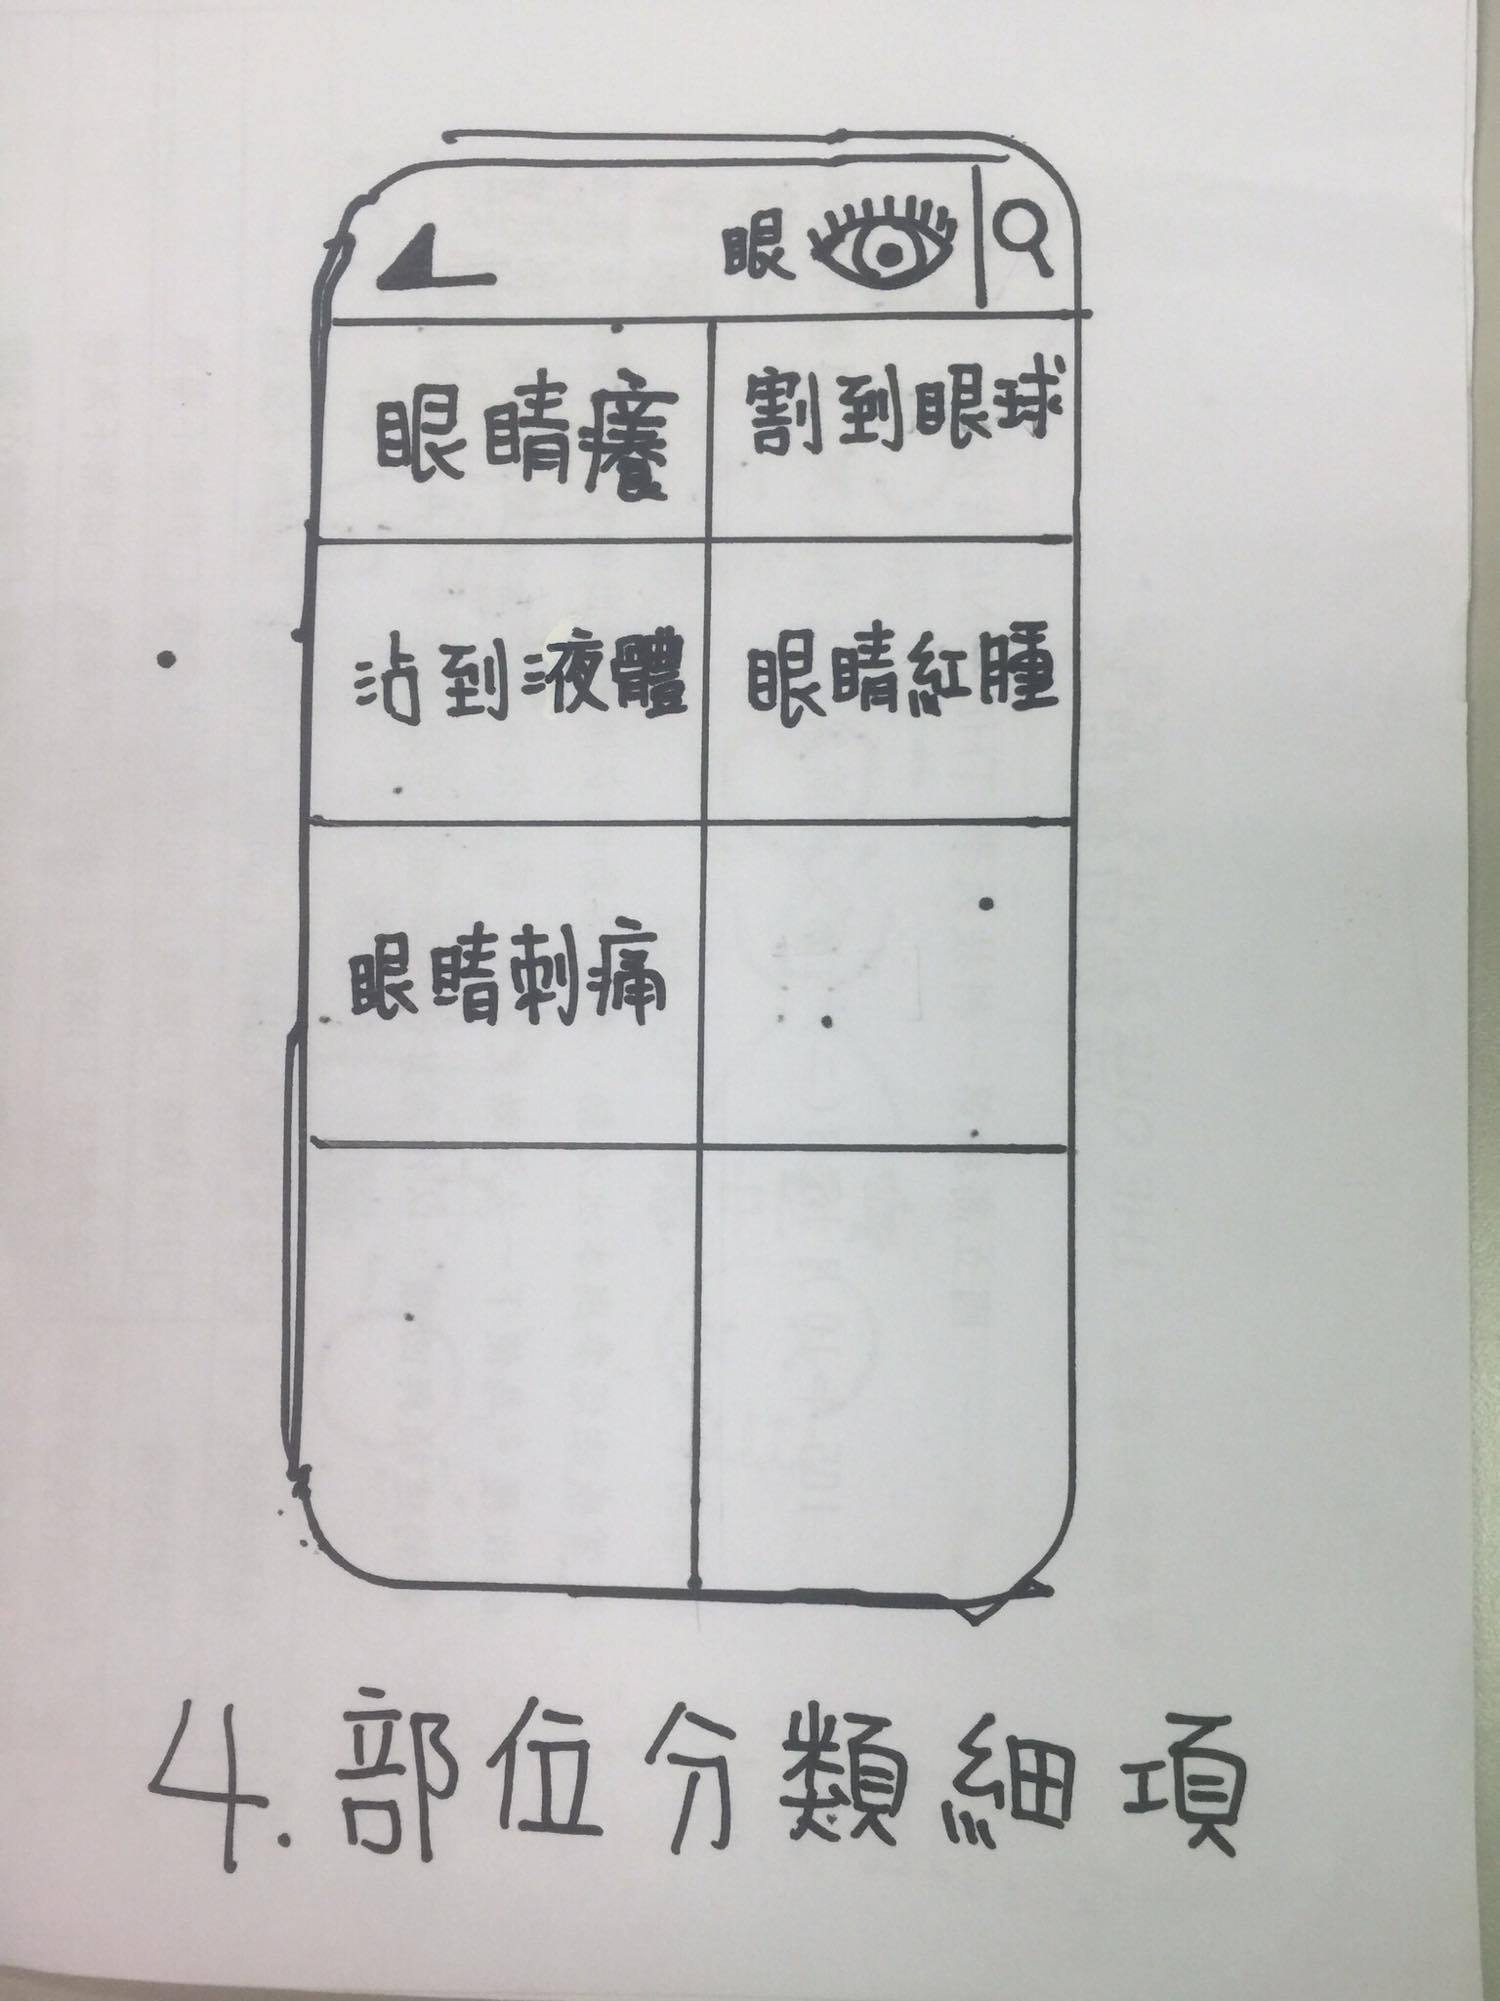 眼
眼睛癢
割到眼球
沾到液體
眼睛紅腫
眼睛刺痛
4.部位分類細項